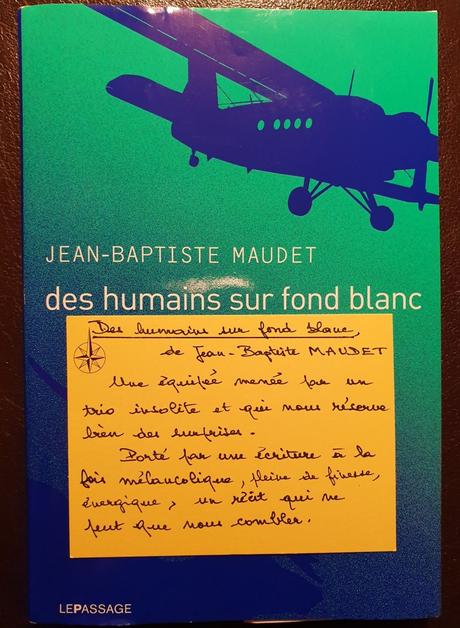 JEAN-BAPTISTE MAUDET
des humains sur fond blanc
Des humains sur fond blanc,
de Jean-Baptiste MAUDET
Une équipée menée par un
trio insolite et qui nous réserve
bien des surprises.
Porté par une écriture à la
fois mélancolique, pleine de finesse,
énergique, un récit qui ne
peut que nous combler.
LEPASSAGE